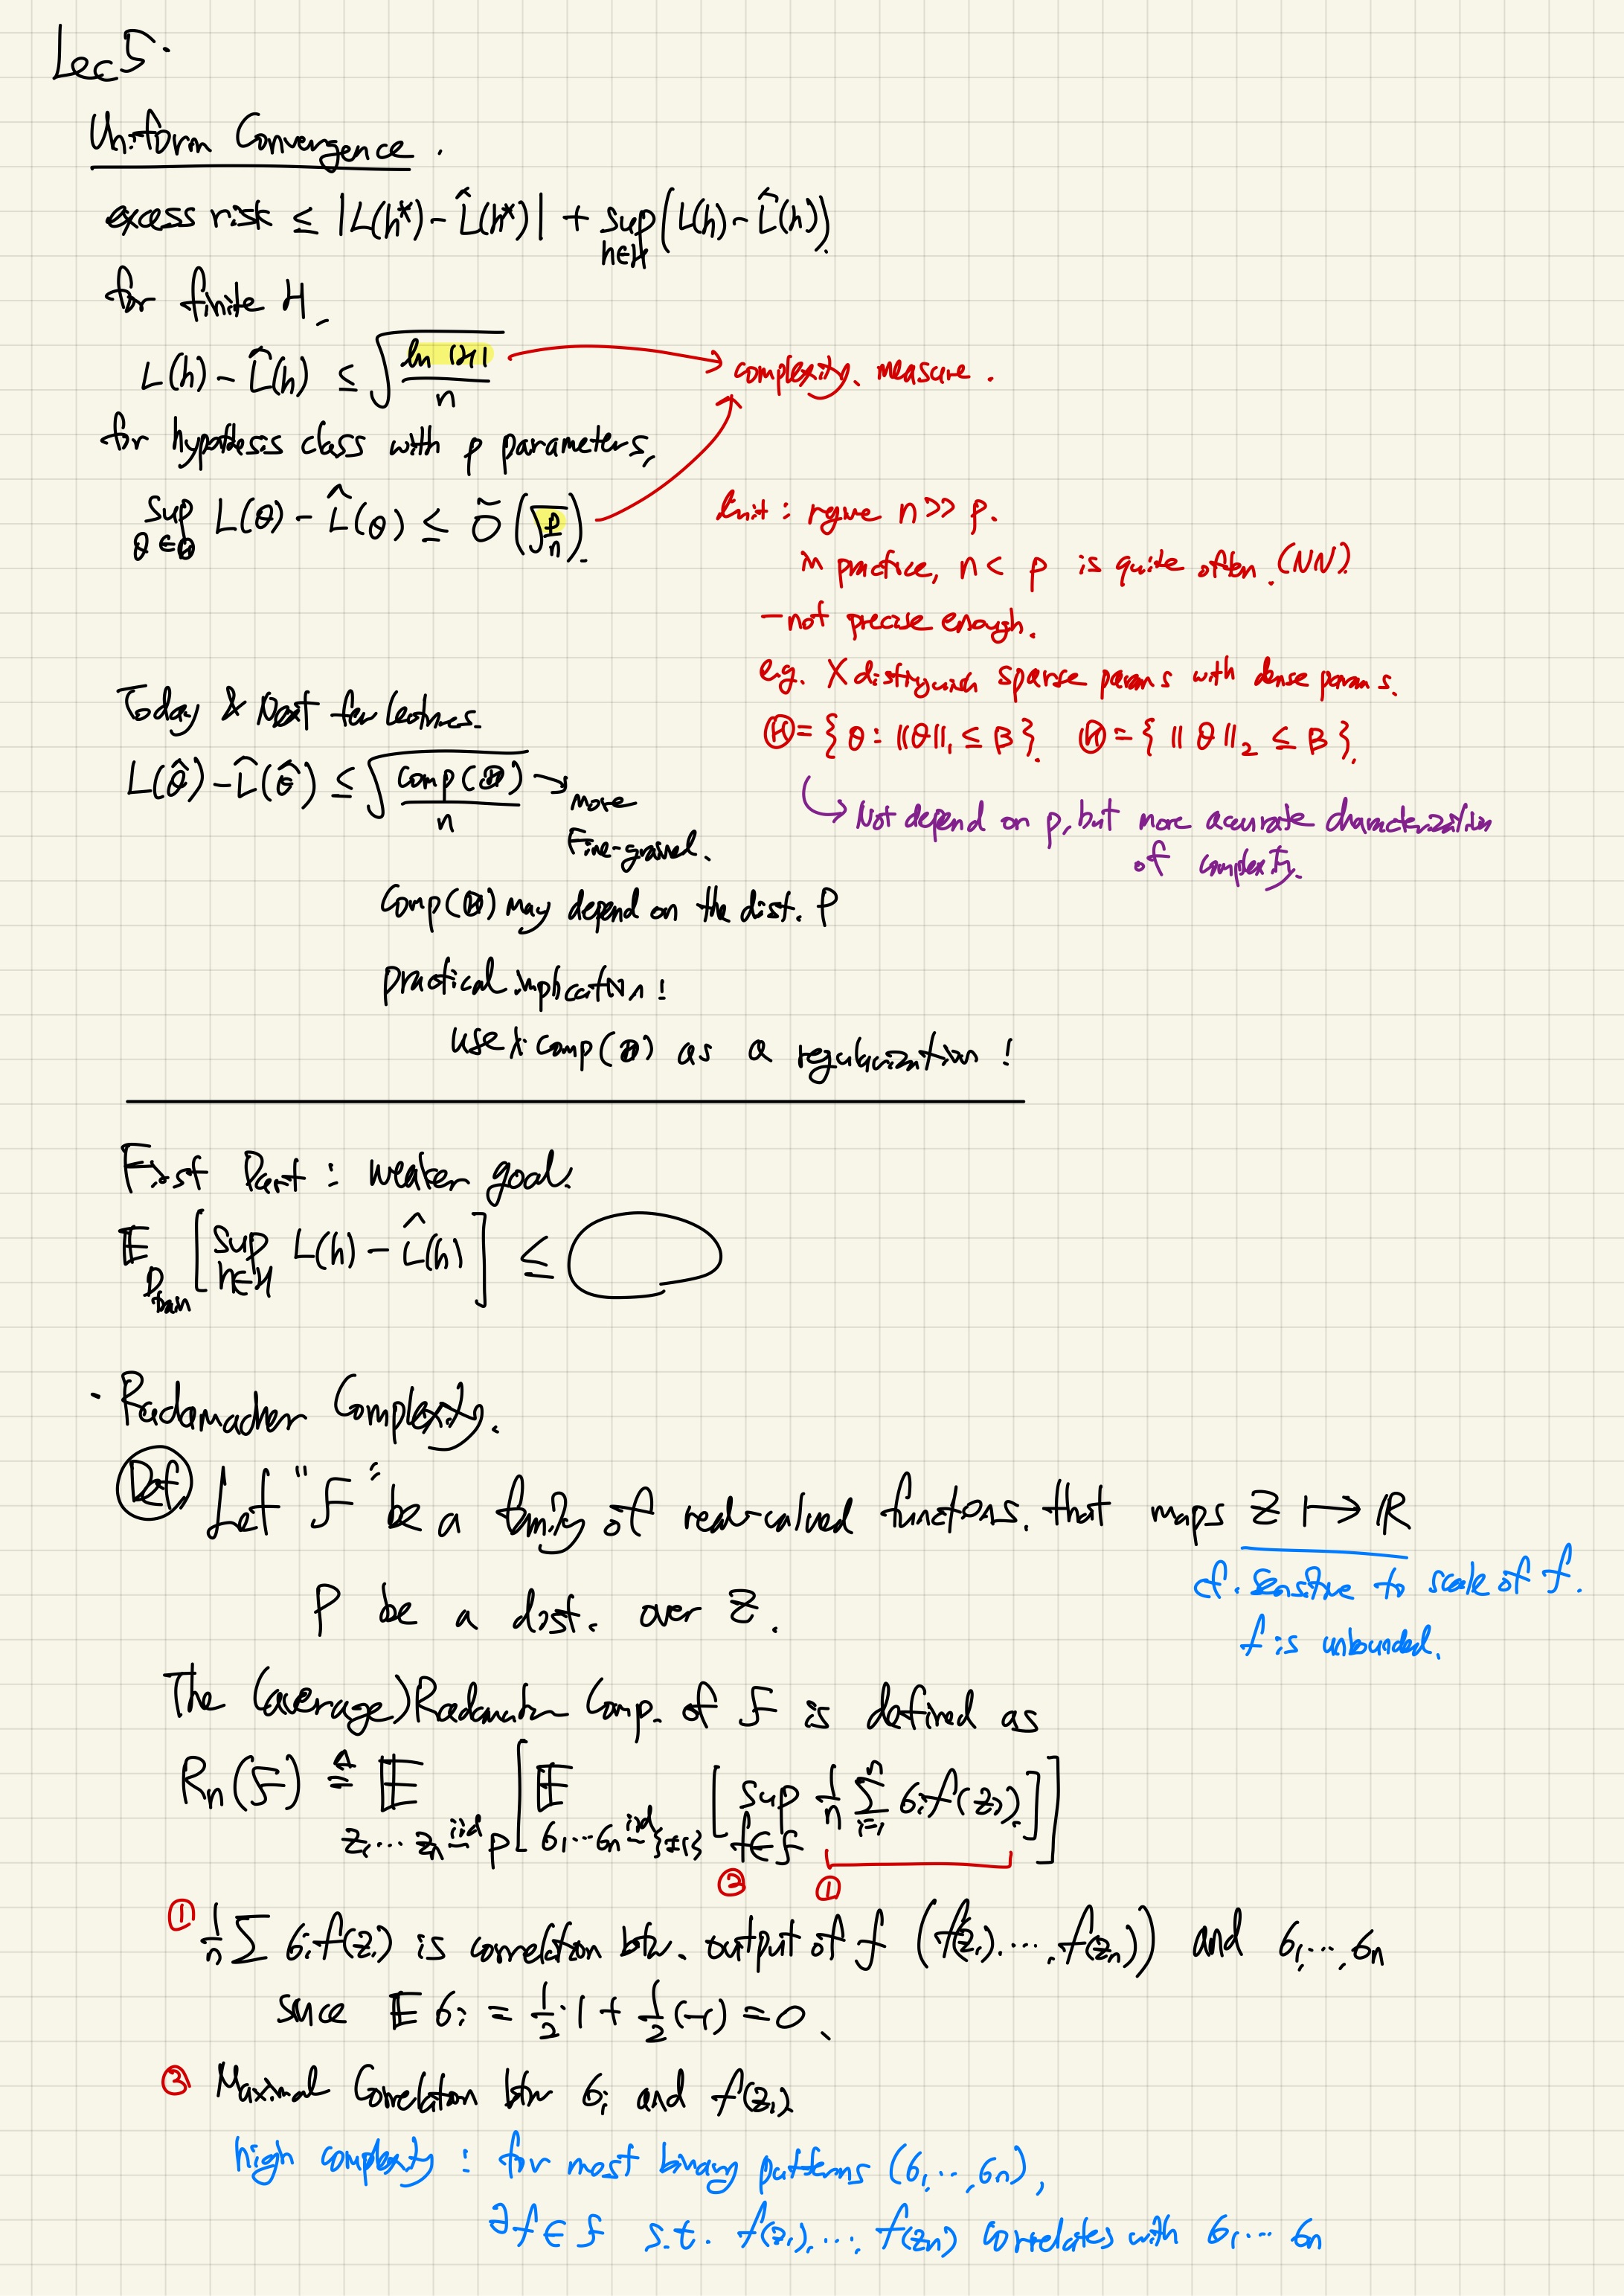 Lec 5.
Uniform Convergence.
excess risk ≤ |L(h*) - L̂(h*)| + sup_{h∈H} (L(h) - L̂(h)).
for finite H,
L(h) - L̂(h) ≤ √(ln |H| / n)
complexity measure.
for hypothesis class with p parameters,
sup_{θ∈Θ} L(θ) - L̂(θ) ≤ Õ(√(p/n)).
limit : regime n >> p.
in practice, n < p is quite often. (NN)
- not precise enough.
e.g. X distinguish sparse params with dense params.
Θ = { θ : ||θ||₁ ≤ B }. Θ = { ||θ||₂ ≤ B }.
Not depend on p, but more accurate characterization
of complexity.
Today & Next few lectures.
L(θ̂) - L̂(θ̂) ≤ √(comp(Θ) / n) → more
Fine-grained.
Comp(Θ) may depend on the dist. P
practical implication !
use λ·comp(Θ) as a regularization !
First Part : weaker goal.
E_{D_train} [ sup_{h∈H} L(h) - L̂(h) ] ≤
· Radamacher Complexity.
Def) Let "F" be a family of real-valued functions. that maps Z ↦ R
cf. sensitive to scale of f.
f is unbounded.
P be a dist. over Z.
The (average) Radamacher Comp. of F is defined as
Rn(F) ≜ E_{z₁...zₙ iid~ P} [ E_{σ₁...σₙ iid~ {±1}} [ sup_{f∈F} 1/n Σ_{i=1}^{n} σᵢf(zᵢ) ] ]
② ①
① 1/n Σ σᵢf(zᵢ) is correlation btw. output of f (f(z₁), ..., f(zₙ)) and σ₁, ..., σₙ
since E σᵢ = 1/2·1 + 1/2(-1) = 0.
② Maximal Correlation btw σᵢ and f(zᵢ)
high complexity : for most binary patterns (σ₁, ..., σₙ),
∃f ∈ F s.t. f(z₁), ..., f(zₙ) correlates with σ₁, ... σₙ